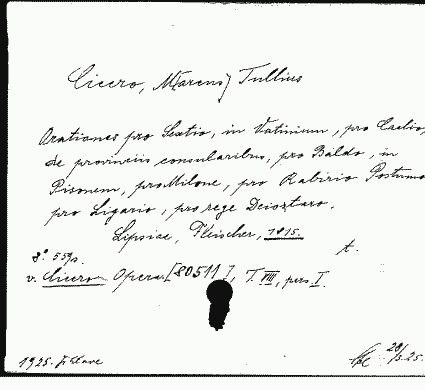 Cicero, M[arcus] Tullius
Orationes pro Sextio, in Vatinium, pro Caelio,
de provinciis consularibus, pro Baldo, in
Pisonem, pro Milone, pro Rabirio Postumo
pro Ligario, pro rege Deioztaro.
Lipsiae, Fleischer, 1815.
8° 559p. t.
v. Cicero Opera [80511], T. VIII, pars I.
1925. 28/5.25.